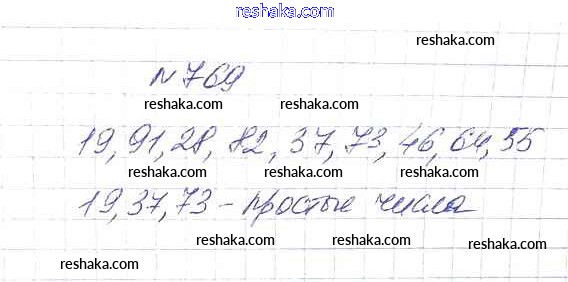 reshaka.com
reshaka.com
№769
reshaka.com reshaka.com
19, 91, 28, 82, 37, 73, 46, 64, 55
reshaka.com reshaka.com
19, 37, 73 - простые числа
reshaka.com reshaka.com reshaka.com
reshaka.com